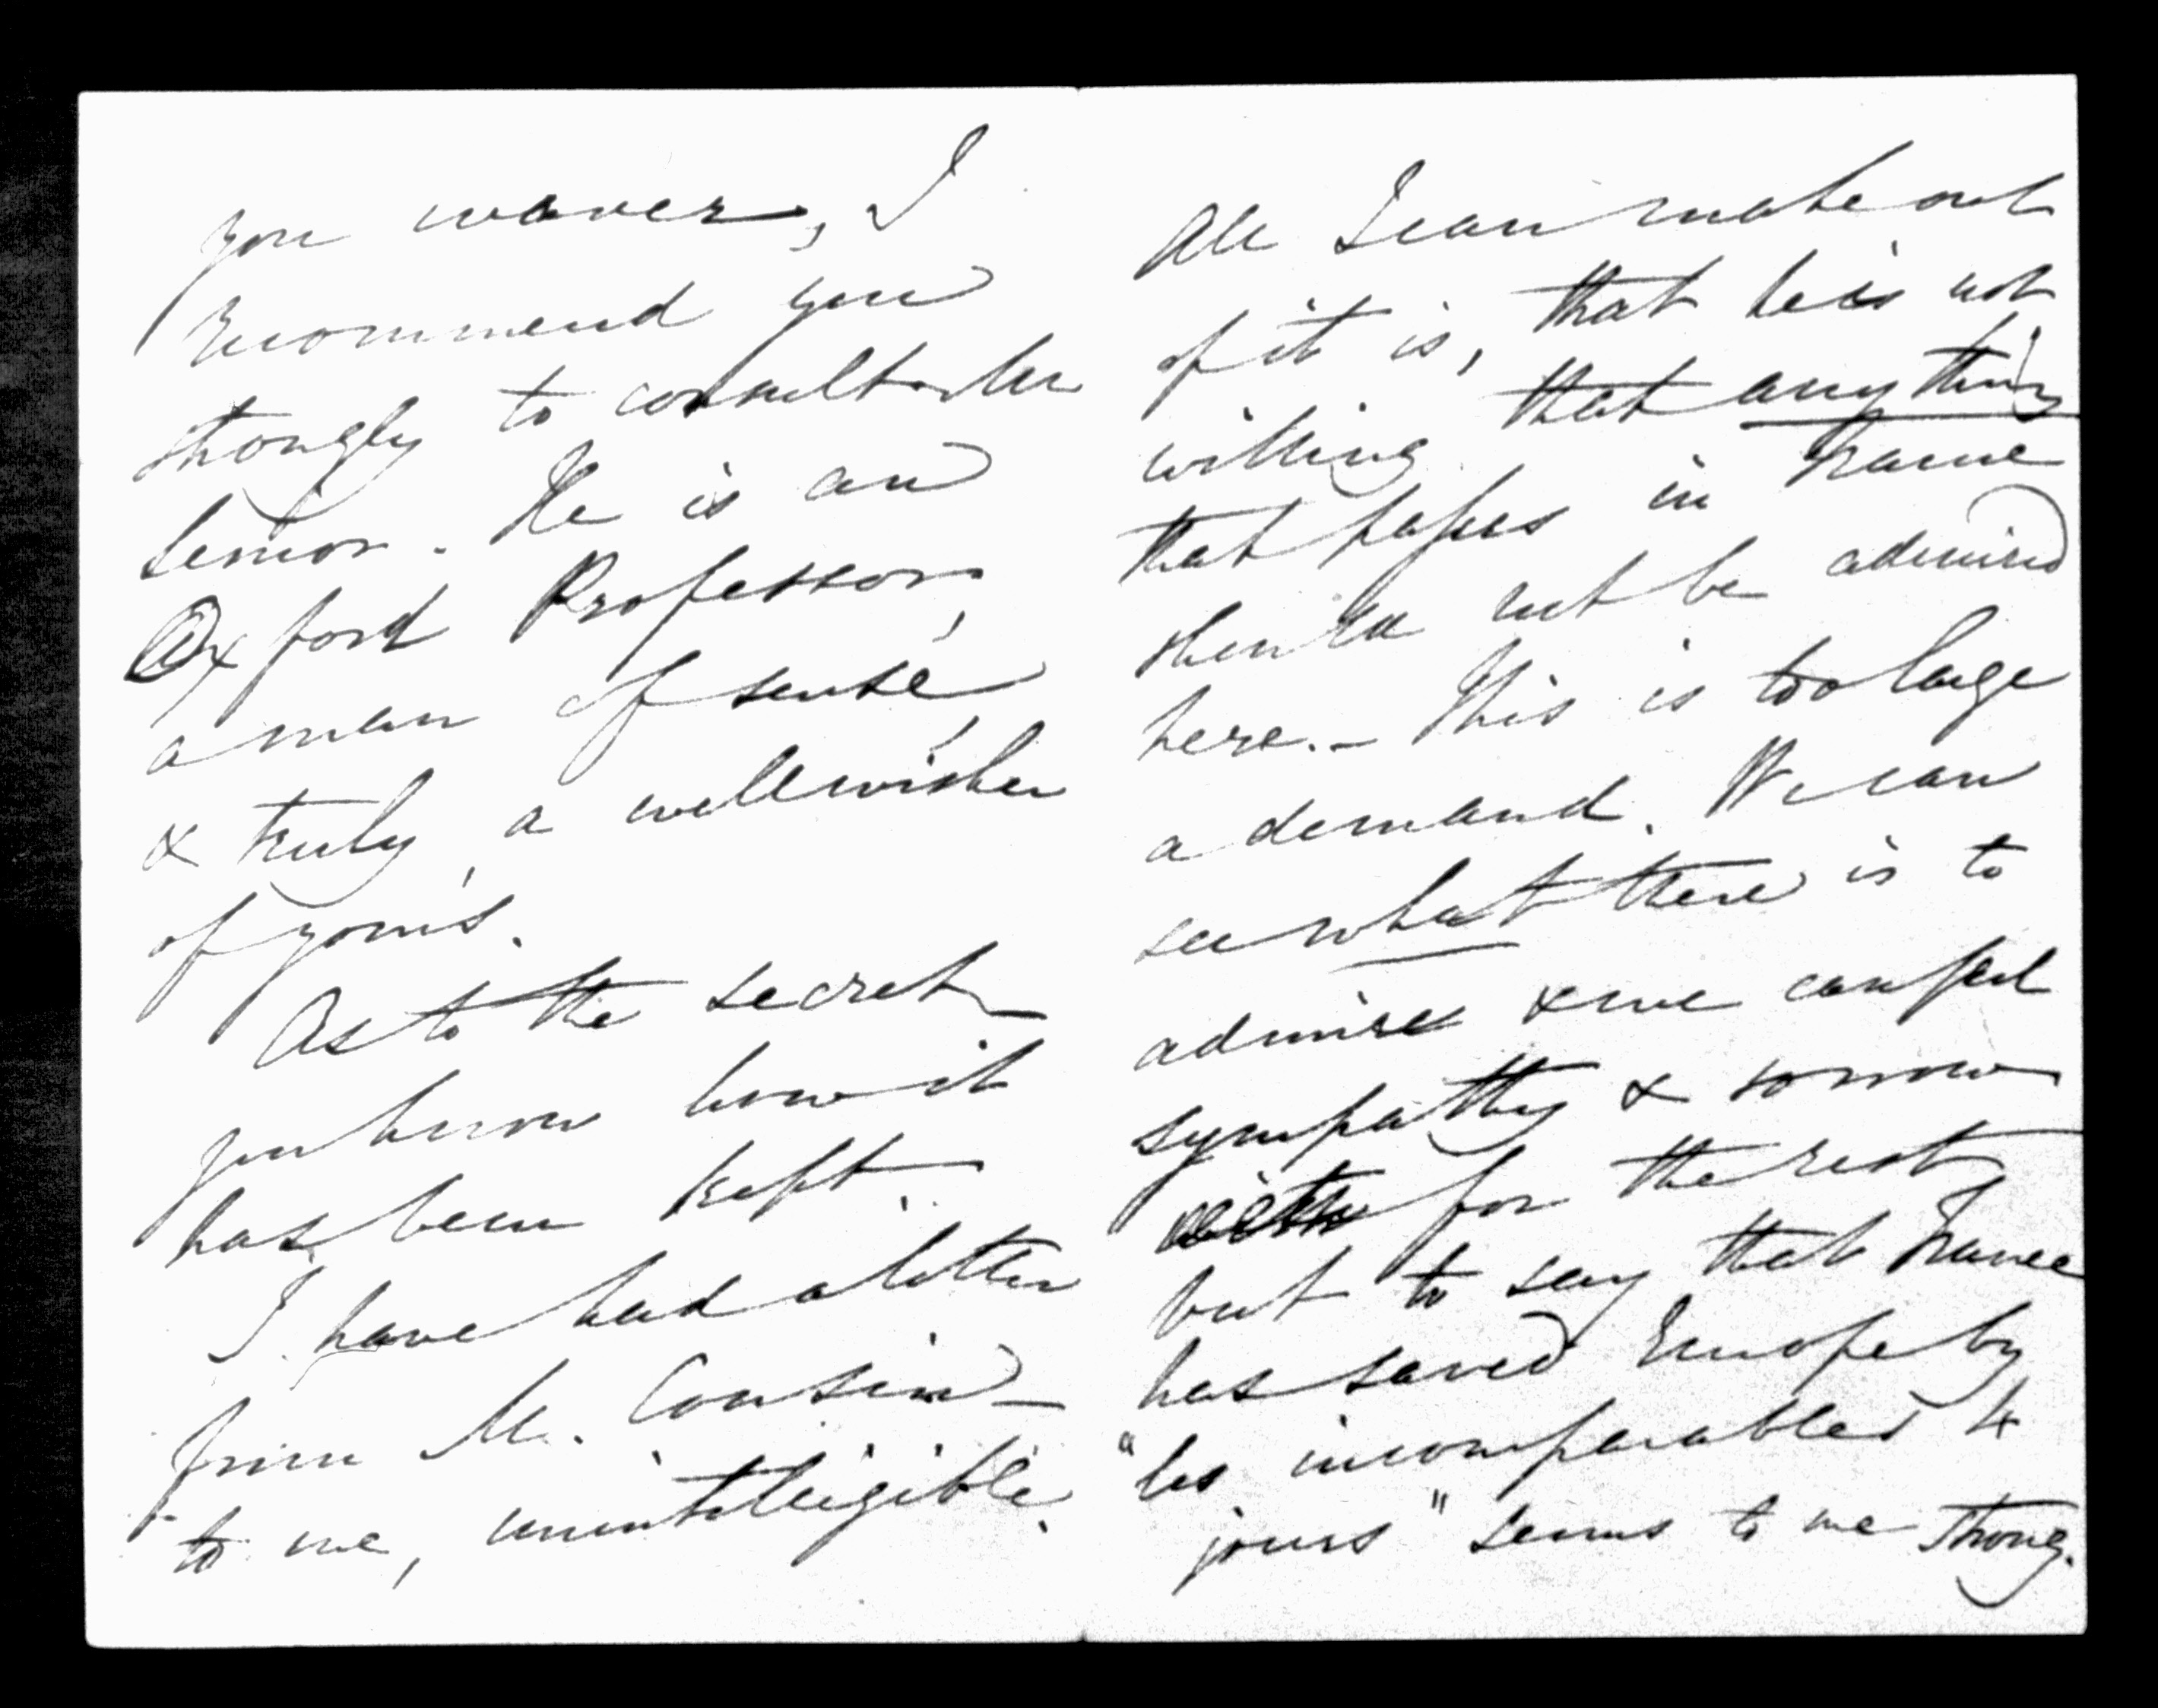 you waver, I
recommend you
strongly to consult Mr
Senior. He is an
Oxford Professor,
a man of sense,
& truly, a wellwisher
of your's.
As to the secret
you know how it
has been kept.
I have had a letter
from M. Cousin —
to me, unintelligible.
All I can make out
of it is, that he is not
willing that anything
that passes in France
should not be admired
here. — This is too large
a demand. We can
see what there is to
admire & we can feel
sympathy & sorrow
with for the rest
but to say that France
has saved Europe by
"les incomparables 4
jours" seems to me strong.